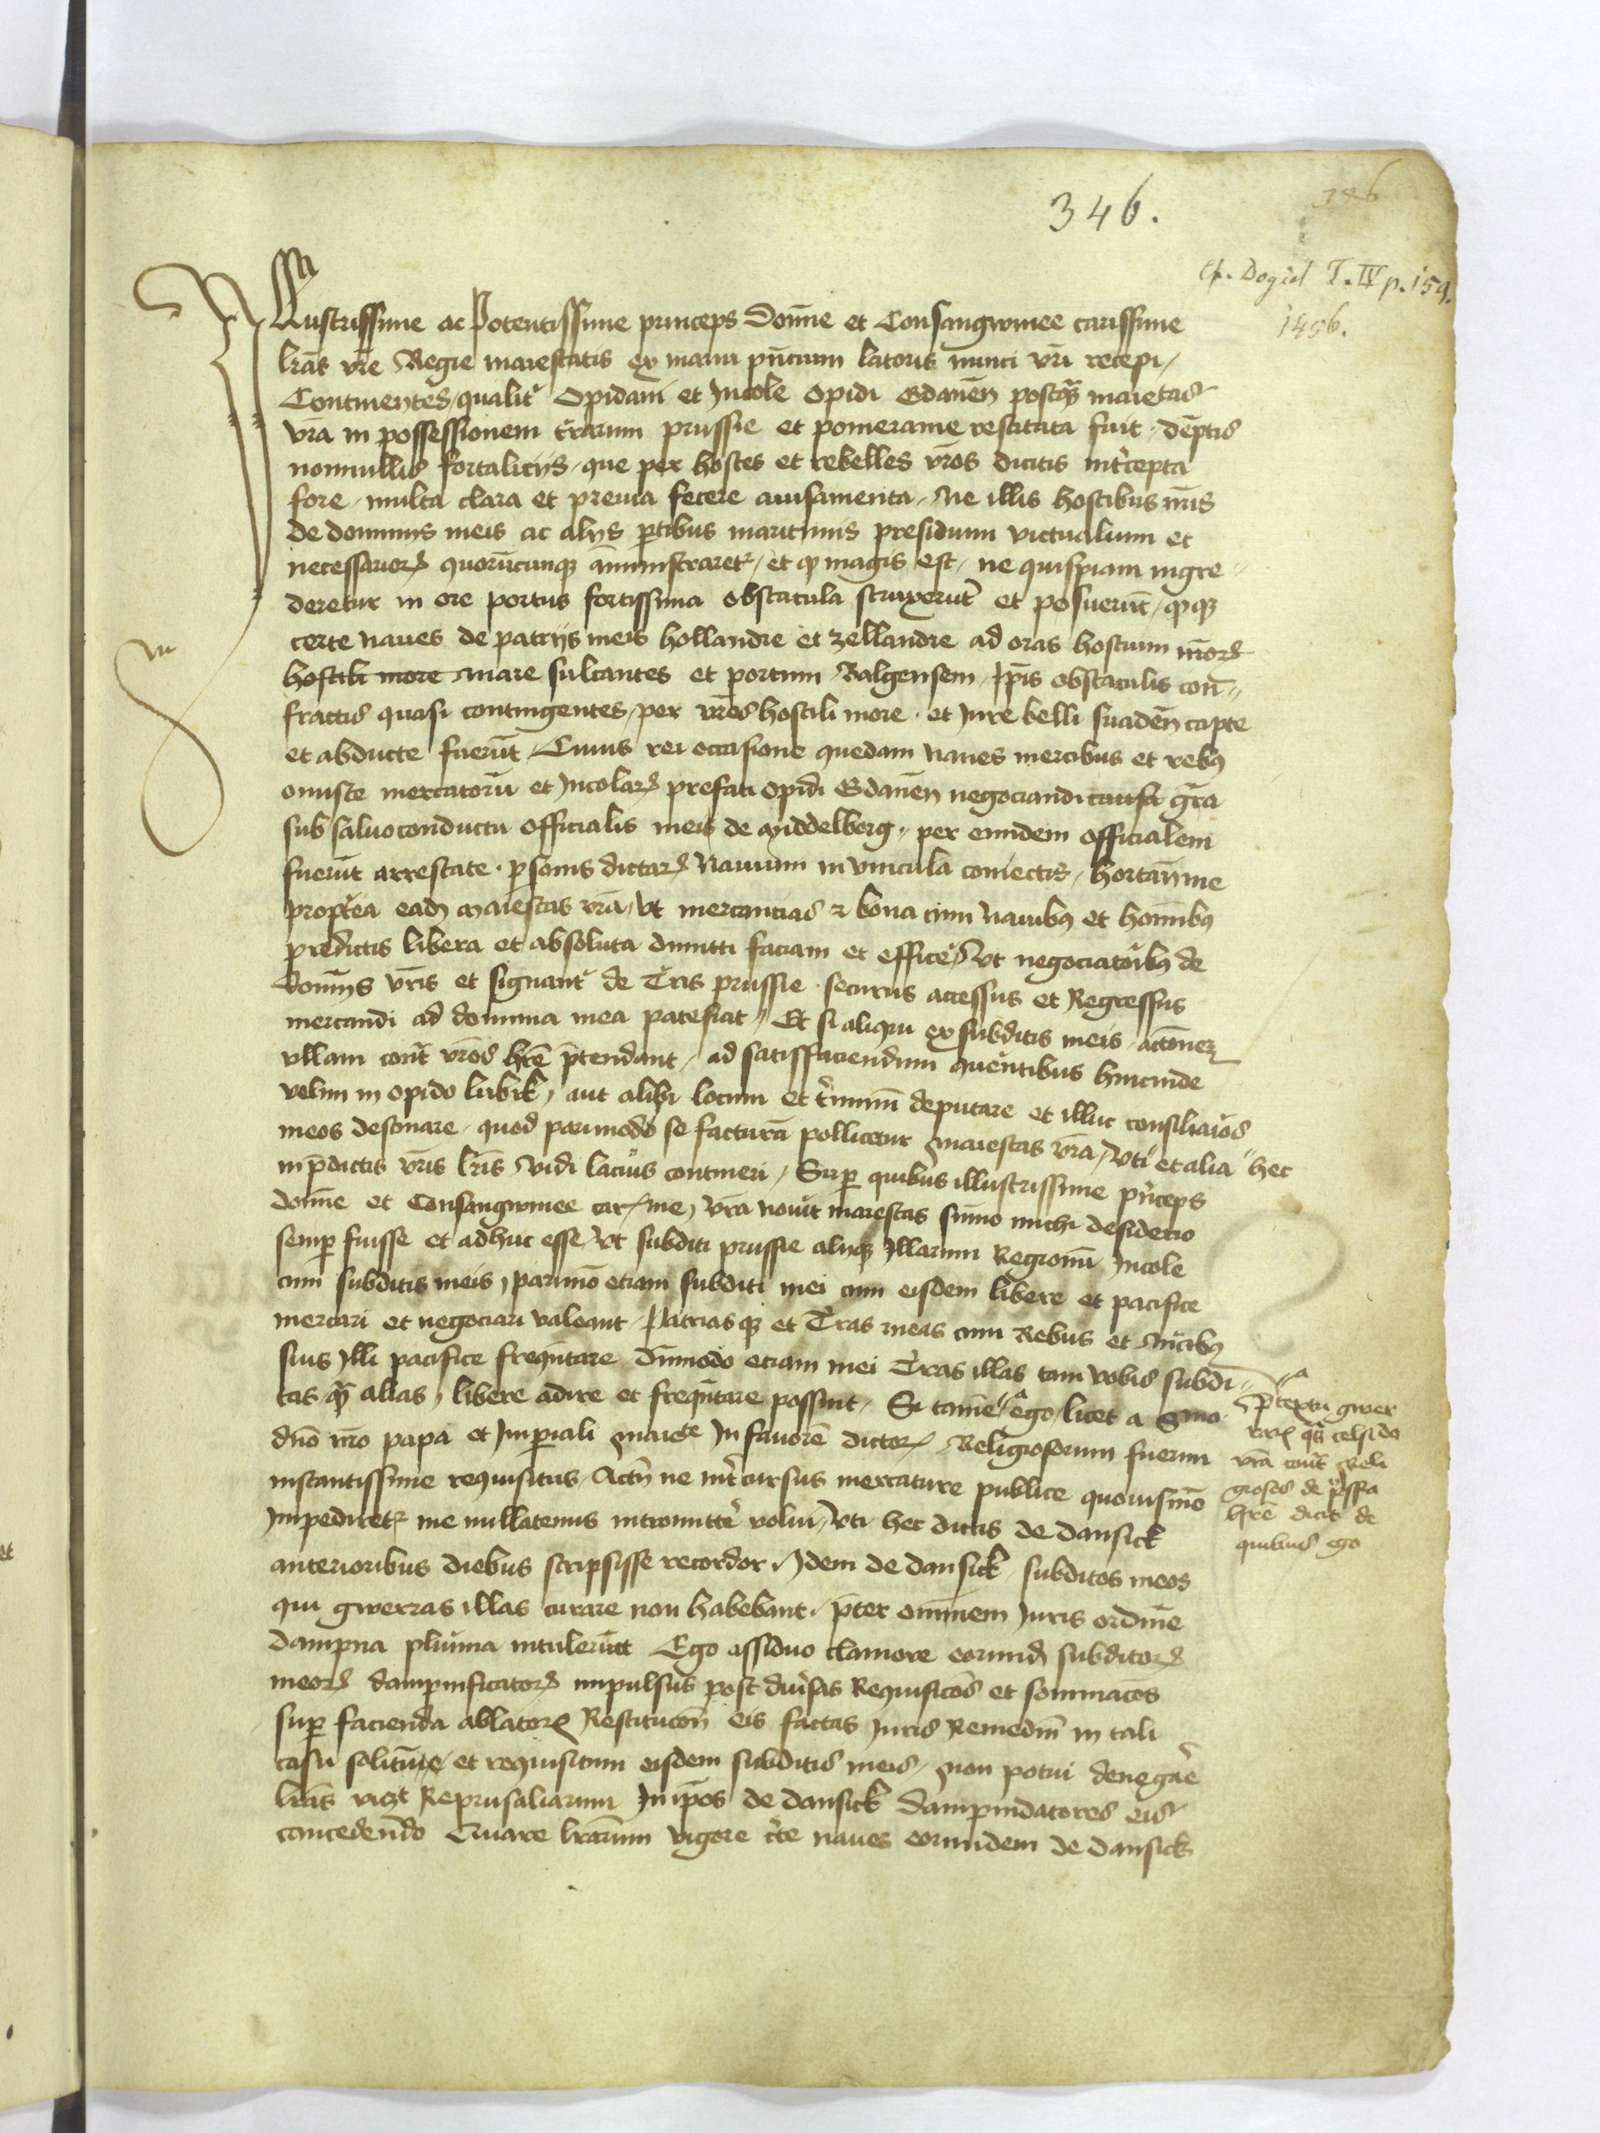 346.
346
cf. Dogiel T. IV p. 159.
1456.
Illustrissime ac Potentissime princeps Domine et Consangwinee carissime
lrās vrē Regie maiestatis ex manu pñcium latoris nuncii vrī recepi /
Continentes / qualitr̄ Opidani et Incole Opidi Gdaneñ postq̄ maiestas
vra in possessionem terrarum prussie et pomeranie restituta fuit / dēptis
nonnullis fortalicijs / que per hostes et rebelles vros dicitis intercepta
fore / multa clara et previa fecere auisamenta / Ne illis hostibus vrīs
de dominijs meis ac alijs ptibus maritimis presidium victualium et
necessarior̄ quorūcunqz āministraret / et qd magis est / ne quispiam ingre-
deretur in ore portus fortissima obstacula struxerūt et posuerūt / qdqz
certe naues de patrijs meis hollandie et zellandie ad oras hostium vr̄or
hostili more mare sulcantes et portum Balgensem / Ipīs obstaculis con-
fractis quasi contingentes / per vros hostili more et Iure belli suadeñ capte
et abducte fuerūt / Cuius rei occasione quedam naues mercibus et rebus
onuste mercatorū et Incolar̄ prefati opidi Gdaneñ negociandi causa grā
sub saluoconductu officialis meis de Middelborg / per eundem officialem
fuerūt arrestate / psonis dictar̄ nauium in vincula coniectis / hortañ me
propterea eadē Maiestas vrā / vt mercancias et bona cum nauibus et hōinibus
predictis libera et absoluta dimitti faciam et efficere / vt negociatoribus de
domīijs vrīs et signantr̄ de Terris prussie securus accessus et Regressus
mercandi ad dominia mea patefiat / Et si aliqui ex subditis meis actionem
vllam contr̄ vros hrē pretendant / ad satisfaciendum querentibus huicinde
velim in opido lubik / aut alibi locum et terminū deputare et illuc consiliarios
meos destinare / quod parimodo se facturā pollicetur Maiestas vrā / vti et alia hec
in pdictis vrīs lrīs vidi lacius contineri / Sup quibus illustrissime princeps
domine et Consangwinee car̄me / vrā nouit maiestas sūmo michi desiderio
semp fuisse et adhuc esse / vt subditi prussie aliiqz Illarum Regionū Incole
cum subditis meis / parimō etiam subditi mei cum eisdem libere et pacifice
mercari et negociari valeant / Patriasqz et Terras meas cum Rebus et Mercibus
suis Illi pacifice frequentare dūmodo etiam mei Terras illas tam vobis subdi-
tas q̄ alias / libere adire et frequentare possint / Si tamē ego / licet a Smo
dño nrō papa et Imperiali Maiēte In fauorē dictor̄ Religiosorum fuerim
instantissime requisitus / Actñ ne intercursus mercature publice quouismō
Impediretr̄ me nullatenus intromittere volui / vti hec dictis de dansick
anterioribus diebus scripsisse recordor / Idem de dansick subditos meos
qui gwerras illas curare non habebant / preter omnem Iuris ordinē
dampna plurima intulerūt Ego assiduo clamore eorundē subditor̄
meor̄ dampnificator̄ impulsus post diuersas Requisicōes et sommacōes
sup facienda ablator̄ Restitucōñ eis factas Iuris Remediū in tali
casu solitum et requisitum eisdem subditis meis / Non potui denegare
lrās vicz Reprisaliarum In ipōs de dansick dampnidatores eis
concedendo Quare lrārum vigore certe naues eorumdem de dansick
Pretextu gwer
rar̄ q̄s celsido
vrā contr̄ Reli
giosos de prussia
hrē dicit de
quibus ego